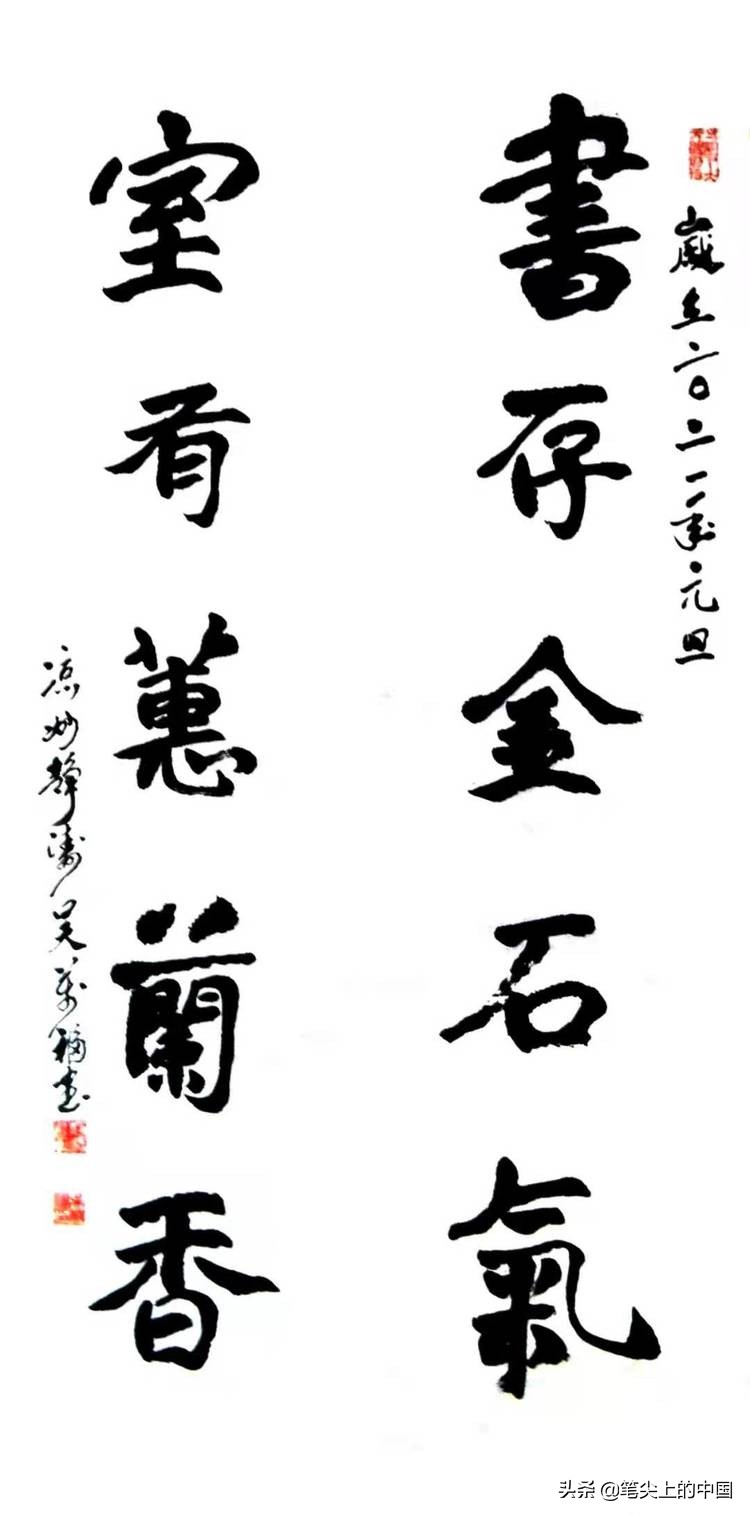 歲在二〇二一年元旦
書存金石氣
室有蕙蘭香
凉州靜濤吴萬福書
头条 @笔尖上的中国